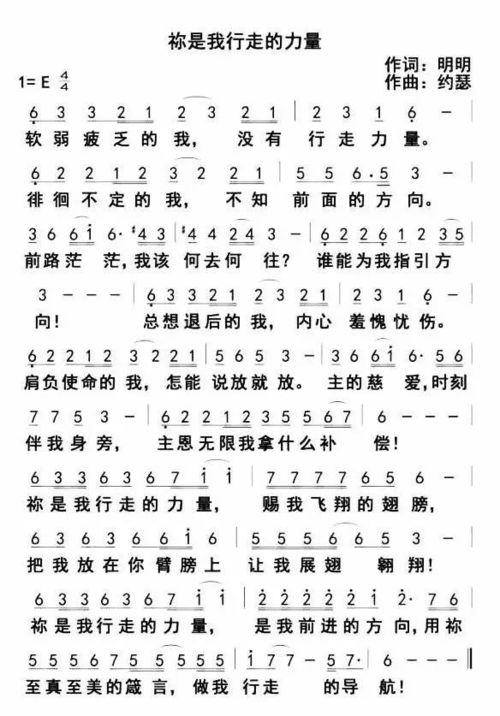 祢是我行走的力量
作词：明明
1= E 4/4
作曲：约瑟
6 3 3 2 1 2 3 2 1 | 2 3 1 6 - |
软弱疲乏的我，没有行走力量。
6 2 2 1 2 3 2 2 1 | 5 5 6·5 3 - |
徘徊不定的我，不知前面的方向。
3 6 6 i 6· #4 3 | #4 4 2 4 3 - | 6 2 2 6 1 2 3 5 |
前路茫茫，我该何去何往？谁能为我指引方
3 - - - | 6 3 3 2 1 2 3 2 1 | 2 3 1 6 - |
向！总想退后的我，内心羞愧忧伤。
6 2 2 1 2 3 2 2 1 | 5 6 5 3 - | 3 6 6 i 6· 5 6 |
肩负使命的我，怎能说放就放。主的慈爱，时刻
7 7 5 3 - | 6 2 2 1 2 3 5 5 6 7 | 6 - - - |
伴我身旁，主恩无限我拿什么补偿！
6 3 3 6 3 6 7 i i | 7 7 7 7 6 5 3 - |
祢是我行走的力量，赐我飞翔的翅膀，
6 3 6 3 6 6 i 6 | 5 5 5 6 5 3 - |
把我放在你臂膀上让我展翅翱翔！
6 3 3 6 3 6 6 7 i i | 2 2 2 2 2 i 2· 7 6 |
祢是我行走的力量，是我前进的方向，用祢
5 5 5 6 7 5 5 3 | i 7 7 - 5 7· | 6 - - - ‖
至真至美的箴言，做我行走的导航！